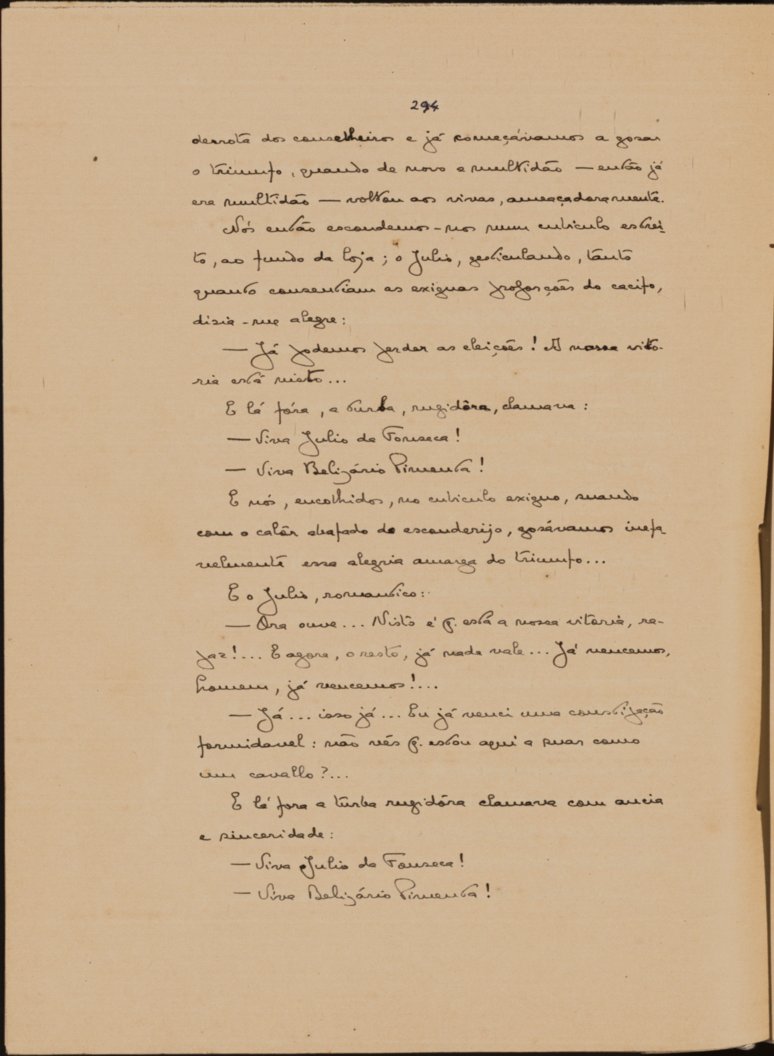 294
derrota dos conselheiros e já começávamos a gosar
o triumfo, quando de novo a multidão — então já
era multidão — voltou aos vivas, ameaçadoramente.
Nós então escondemos-nos num cubiculo estrei-
to, ao fundo da loja; o Julio, gesticulando, tanto
quanto consentiam as exiguas proporções do cacifo,
dizia-me alegre:
— Já podemos perder as eleições! A nossa vito-
ria está nisto...
E lá fóra, a turba, rugidôra, clamava:
— Viva Julio da Fonseca!
— Viva Belizário Pimenta!
E nós, encolhidos, no cubiculo exiguo, suando
com o calôr abafado do esconderijo, gosávamos inefa
velmente essa alegria amarga do triumfo...
E o Julio, romantico:
— Ora ouve... Nisto é q. está a nossa vitoria, ra-
paz!... E agora, o resto, já nada vale... Já vencemos,
homem, já vencemos!...
— Já... isso já... Eu já venci uma constipação
formidavel: não vês q. estou aqui a suar como
um cavallo?...
E lá fora a turba rugidôra clamava com ancia
e sinceridade:
— Viva Julio da Fonseca!
— Viva Belizário Pimenta!